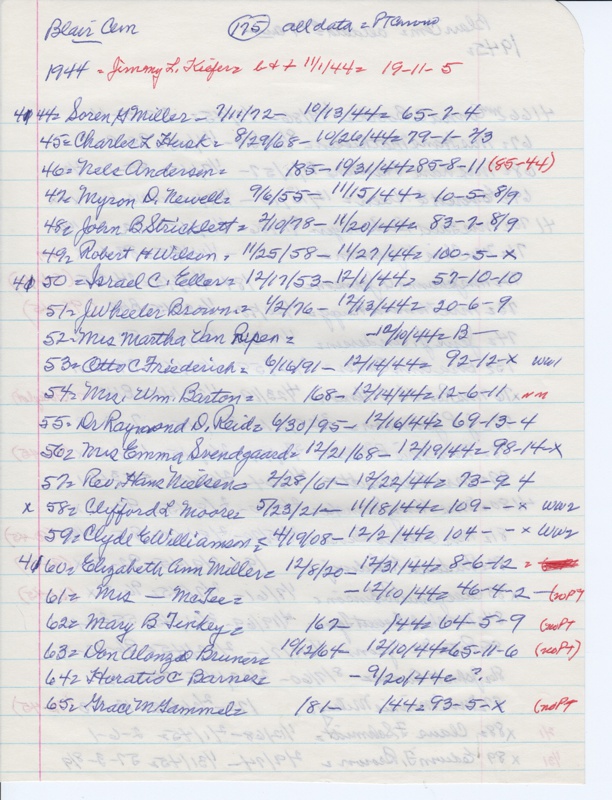 Blair Cem (175) all data =
1944 = Jimmy L. Kiefer = b+t 11/1/44 = 19-11-5
41 44 = Soren H Miller - 7/11/72 - 10/13/44 = 65-2-4
45 = Charles L Husk = 8/29/68 - 10/26/44 = 79-1-2/3
46 = Nels Anderson = 185 - 10/31/44 = 85-8-11 (85-44)
47 = Myron D. Newell = 9/6/55 - 11/15/44 = 10-5-8/9
48 = John B Stricklett = 2/10/78 - 11/20/44 = 83-7-8/9
49 = Robert H Wilson, 11/25/58 - 11/27/44 = 100-5-x
41 50 = Israel C. Eller = 12/17/53 - 12/1/44 = 57-10-10
51 = J Wheeler Brown = 4/2/76 - 12/13/44 = 20-6-9
52 = Mrs Martha Van Ripen = - 12/10/44 = B -
53 = Otto C Friederich = 6/16/91 - 12/14/44 = 92-12-x WW1
54 = Mrs. Wm. Barton = 168 - 12/14/44 = 12-6-11
55 = Dr Raymond D. Reid = 6/30/95 - 12/16/44 = 69-13-4
56 = Mrs Emma Svendgaard = 12/21/68 - 12/19/44 = 98-14-x
57 = Rev. Hans Nielsen = 2/28/61 - 12/22/44 = 73-9-4
x 58 = Clyfford L Moore = 5/23/21 - 11/18/44 = 109 - - x WW2
59 = Clyde E Williamson = 4/19/08 - 12/2/44 = 104 - - x WW2
41 60 = Elizabeth Ann Miller = 12/8/20 - 12/31/44 = 8-6-12 =
61 = Mrs — McFee = - 12/10/44 = 46-4-2 - (noPT
62 = Mary B Tinkey = 162 - 144 = 64-5-9 (noPT
63 = Don Alonzo Bruner = 10/12/64 - 12/10/44 = 65-11-6 (noPT)
64 = Horatio C Barnes = - 9/20/44 = ?
65 = Grace M Gammel = 181 - 144 = 93-5-x (noPT